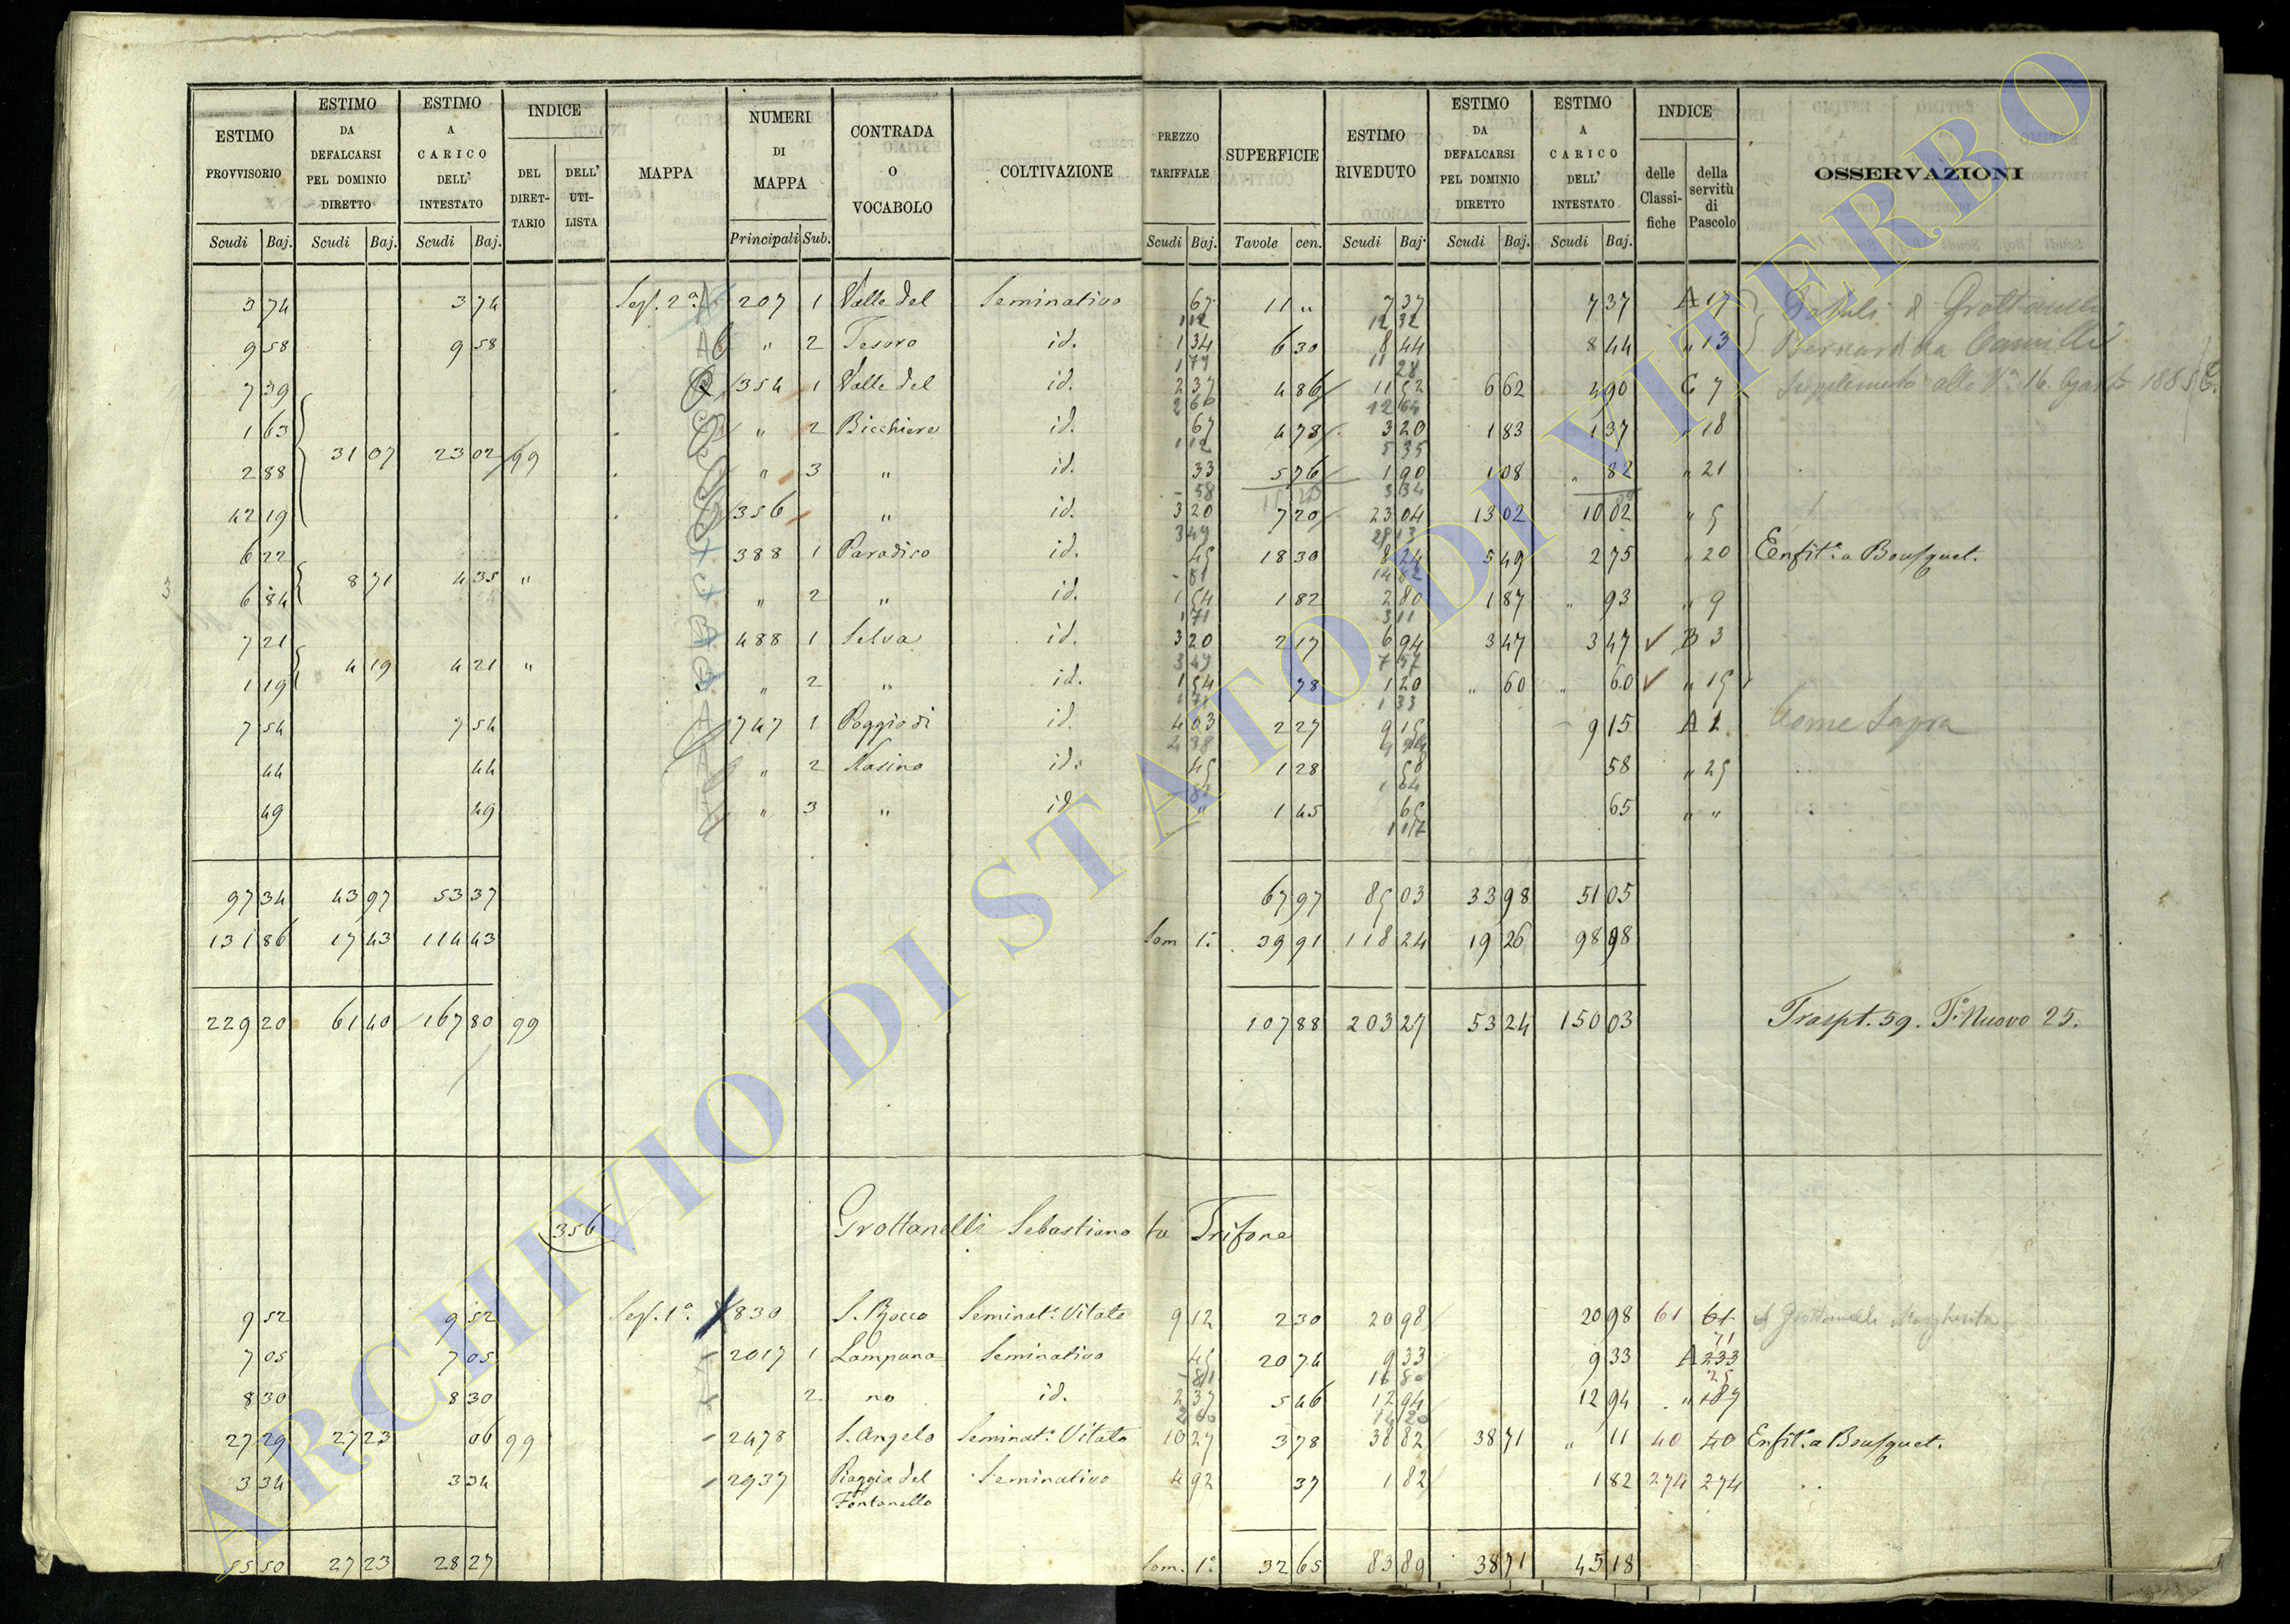 ESTIMO PROVVISORIO
ESTIMO DA DEFALCARSI PEL DOMINIO DIRETTO
ESTIMO A CARICO DELL' INTESTATO
INDICE
DEL DIRET-TARIO
DELL' UTI-LISTA
MAPPA
NUMERI DI MAPPA
CONTRADA O VOCABOLO
COLTIVAZIONE
PREZZO TARIFFALE
SUPERFICIE
ESTIMO RIVEDUTO
ESTIMO DA DEFALCARSI PEL DOMINIO DIRETTO
ESTIMO A CARICO DELL' INTESTATO
INDICE
delle Classi-fiche
della servitù di Pascolo
OSSERVAZIONI
Scudi Baj. Scudi Baj. Scudi Baj. Principali Sub. Scudi Baj. Tavole cen. Scudi Baj. Scudi Baj. Scudi Baj.
3 74 3 74 Sez. 2a 207 1 Valle del Seminativo 67 11 " 7 37 7 37 A 17
1 12 12 32
9 58 9 58 " 2 Tesoro id. 1 34 6 30 8 44 8 44 " 13
1 79 11 28
7 39 354 1 Valle del id. 2 37 4 86 11 52 6 62 4 90 C 7
2 60 12 64
1 63 " 2 Bicchiere id. 67 4 78 3 20 1 83 1 37 " 18
1 12 5 35
2 88 31 07 23 02 99 " 3 " id. 33 5 76 1 90 1 08 " 82 " 21
58 3 34
42 19 356 " id. 3 20 7 20 23 04 13 02 10 02 " 5
3 49
6 22 388 1 Paradiso id. 45 18 30 8 24 5 49 2 75 " 20 Eenfit. a Bousquet.
81 14 82
8 71 4 35 "
6 84 " 2 " id. 1 54 1 82 2 80 1 87 " 93 " 9
1 71 3 11
7 21 488 1 Selva id. 3 20 2 17 6 94 3 47 3 47 B 3
3 49 7 57
4 19 4 21 "
1 19 " 2 " id. 1 54 78 1 20 " 60 " 60 " 15
1 71 1 33
7 54 7 54 747 1 Poggio di id. 4 03 2 27 9 15 9 15 A 1 Come Sopra
44 44 " 2 Masino id. 45 1 28 58 58 " 25
49 49 " 3 " id. " 1 45 65 65 " "
1 17
97 34 43 97 53 37 67 97 85 03 33 98 51 05
131 86 17 43 114 43 Som 1a 39 91 118 24 19 26 98 98
229 20 61 40 167 80 99 107 88 203 27 53 24 150 03 Traspt. 59. To Nuovo 25.
356 Grottanelli Sebastiano fu Trifone
9 52 9 52 Sez. 1a 830 S. Rocco Seminat. Vitato 9 12 2 30 20 98 20 98 61 61 Grottanelli Margherita
71
7 05 7 05 2017 1 Lampana Seminativo 45 20 74 9 33 9 33 A 233
81 16 80 25
8 30 8 30 2 no id. 2 37 5 46 12 94 12 94 " 187
2 60 14 20
27 29 27 23 06 99 2478 S. Angelo Seminat. Vitato 10 27 3 78 38 82 38 71 " 11 40 40 Enfit. a Bousquet.
3 34 3 34 2937 Piaggia del Seminativo 4 92 37 1 82 1 82 274 274
Fontanello
55 50 27 23 28 27 Som. 1a 32 65 83 89 38 71 45 18
ARCHIVIO DI STATO DI VITERBO